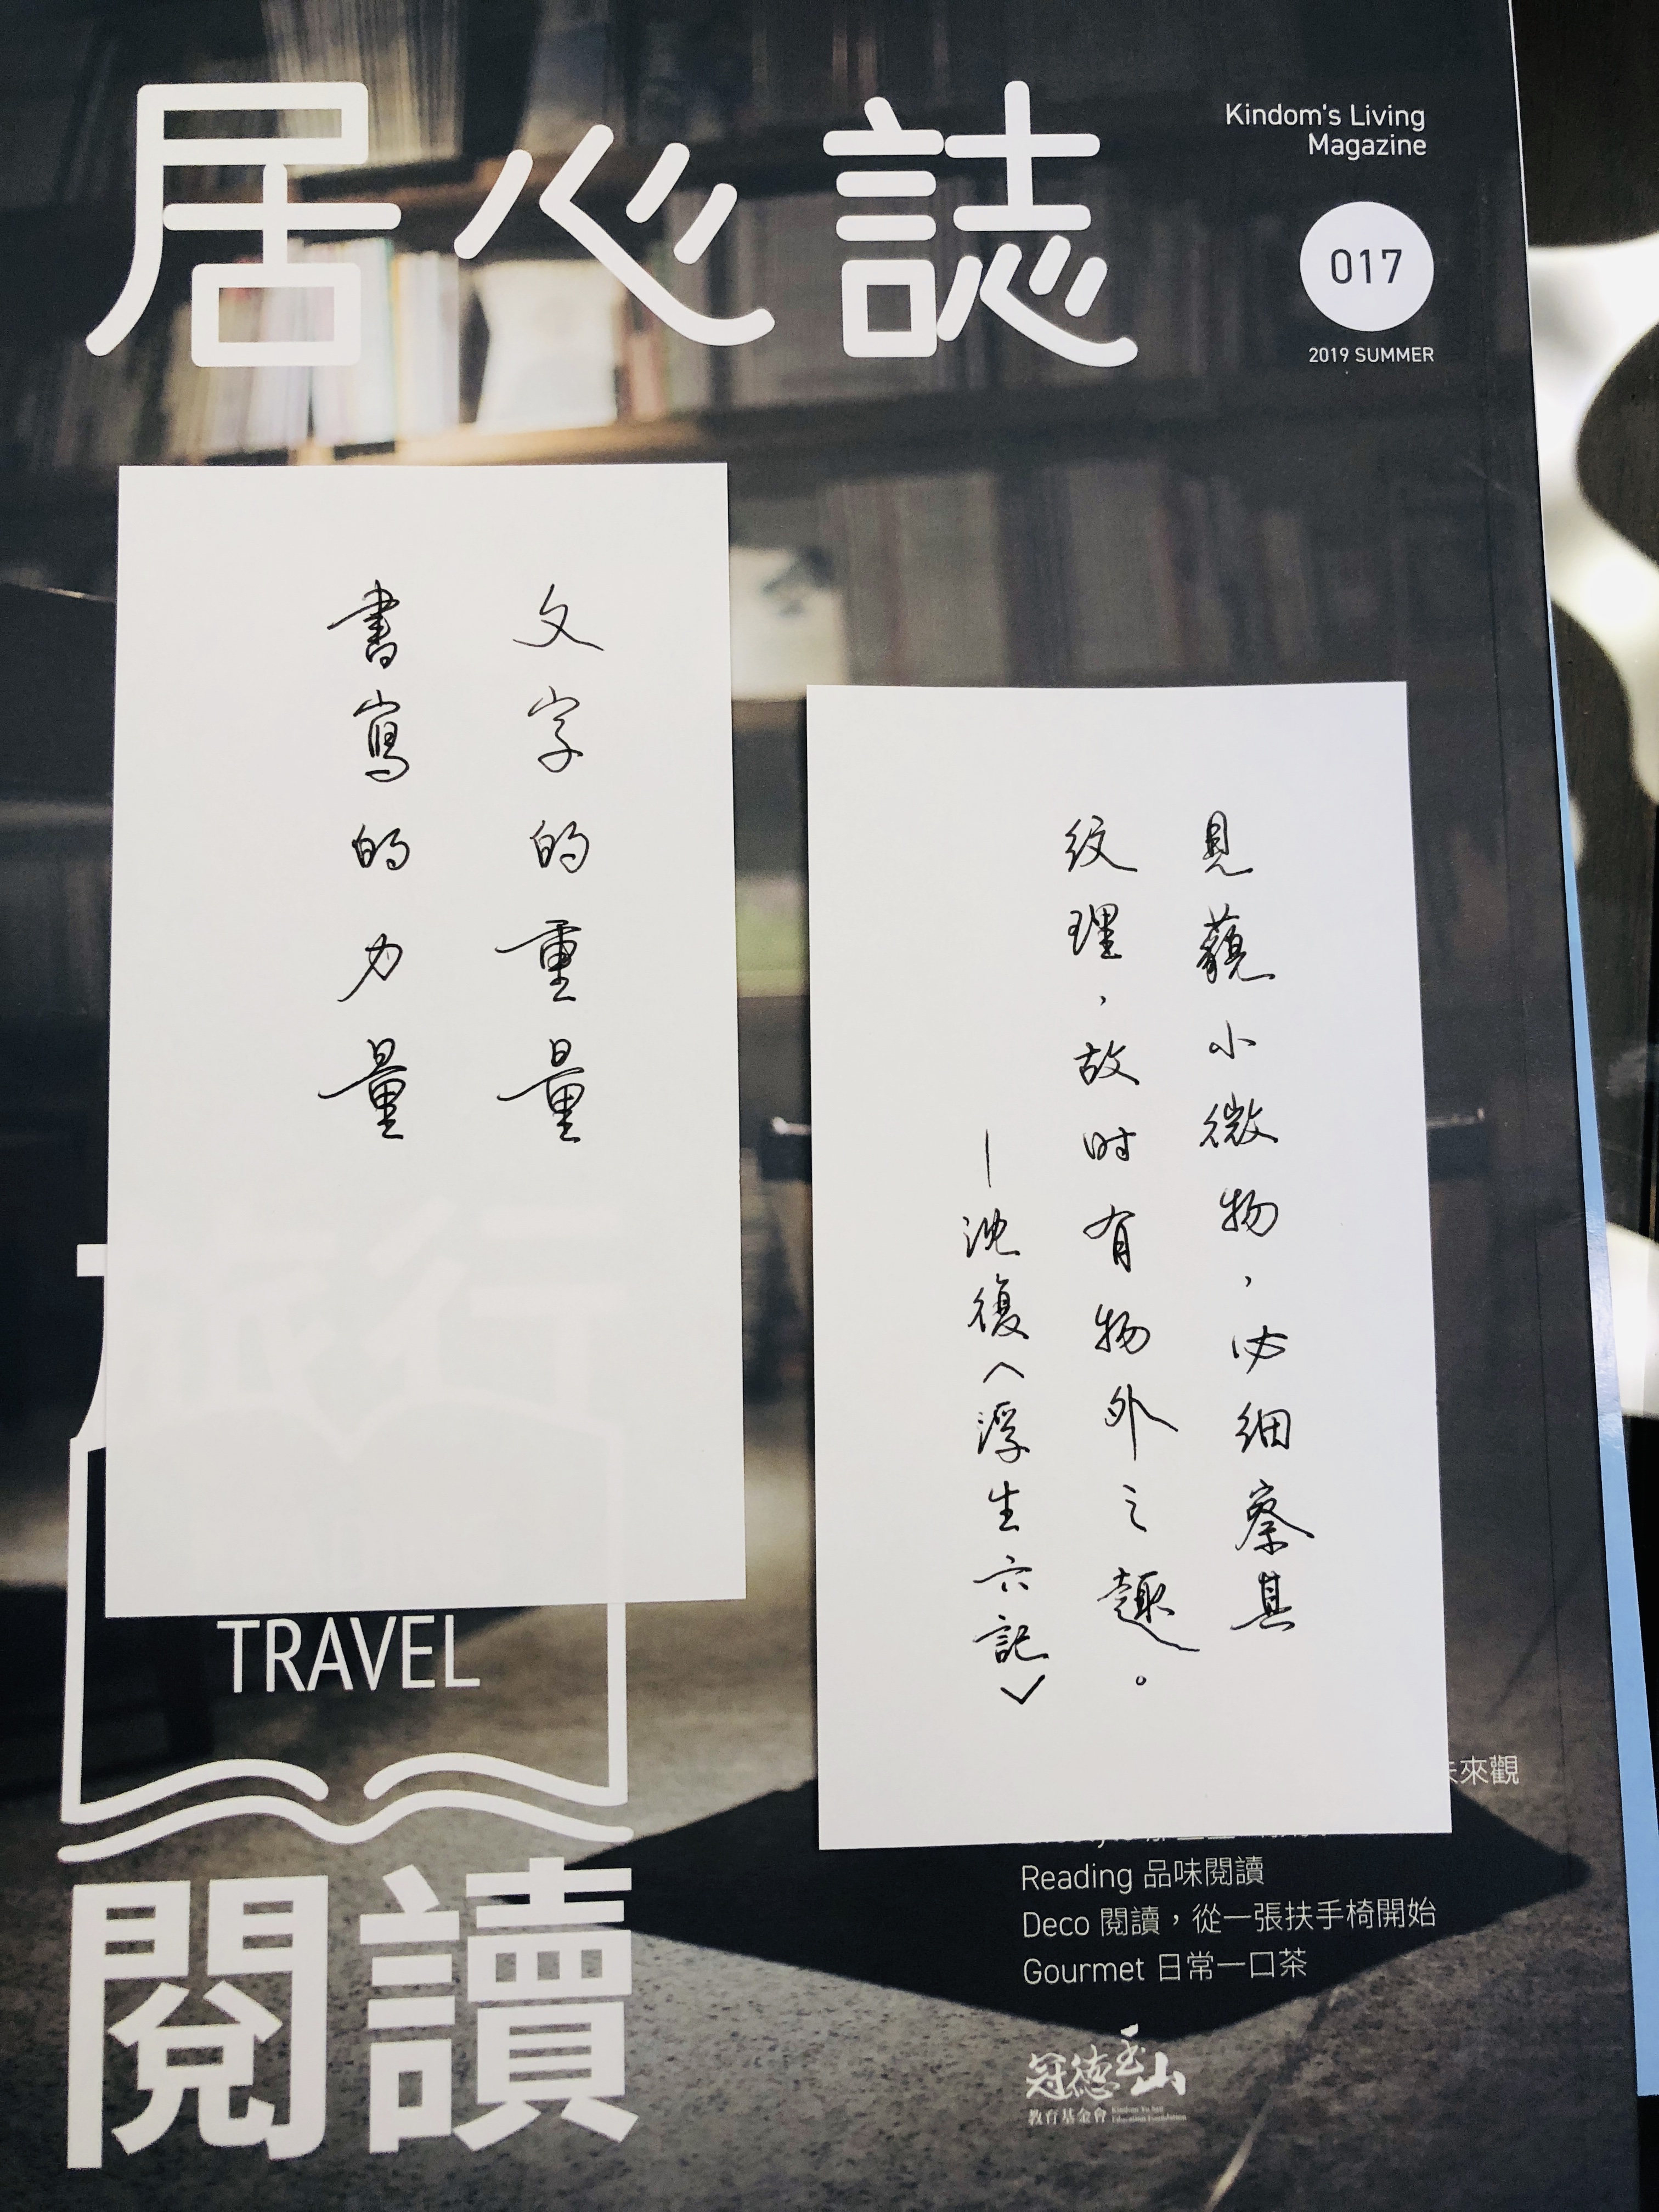 居心誌
Kindom's Living
Magazine
017
2019 SUMMER
文字的重量
書寫的力量
見藐小微物，必細察其
紋理，故时有物外之趣。
—沈復〈浮生六記〉
旅行
TRAVEL
閱讀
來觀
Reading 品味閱讀
Deco 閱讀，從一張扶手椅開始
Gourmet 日常一口茶
冠德玉山
教育基金會
Kindom Yu San
Education Foundation